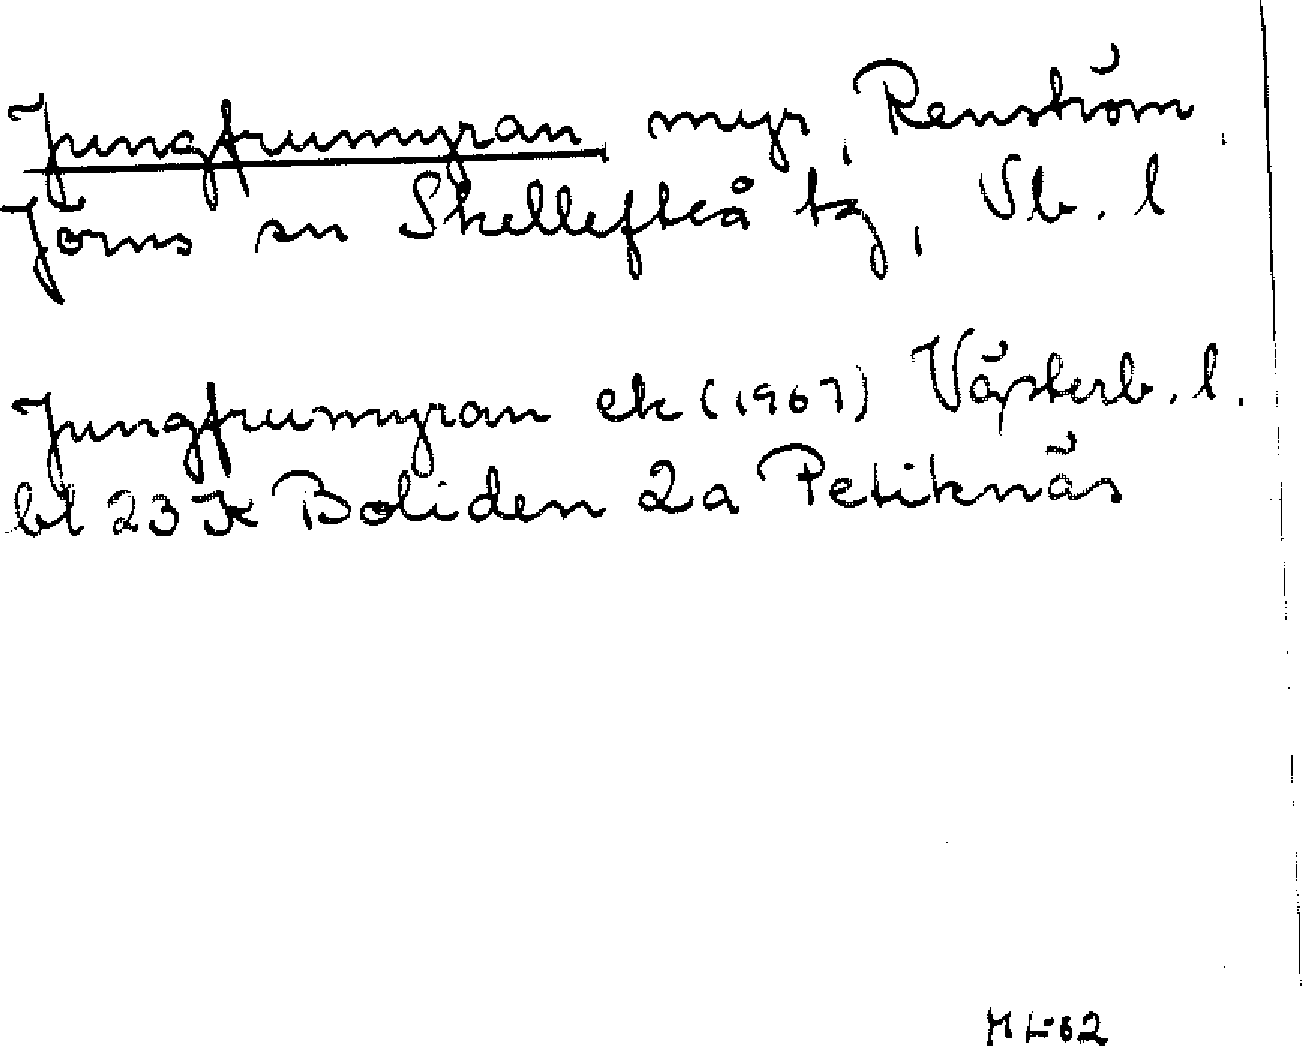 Jungfrumyran myr, Renström,
Jörns sn Skellefteå tg, Vb. l
Jungfrumyran ek (1967) Västerb. l.
bl 23 K Boliden 2a Petiknäs